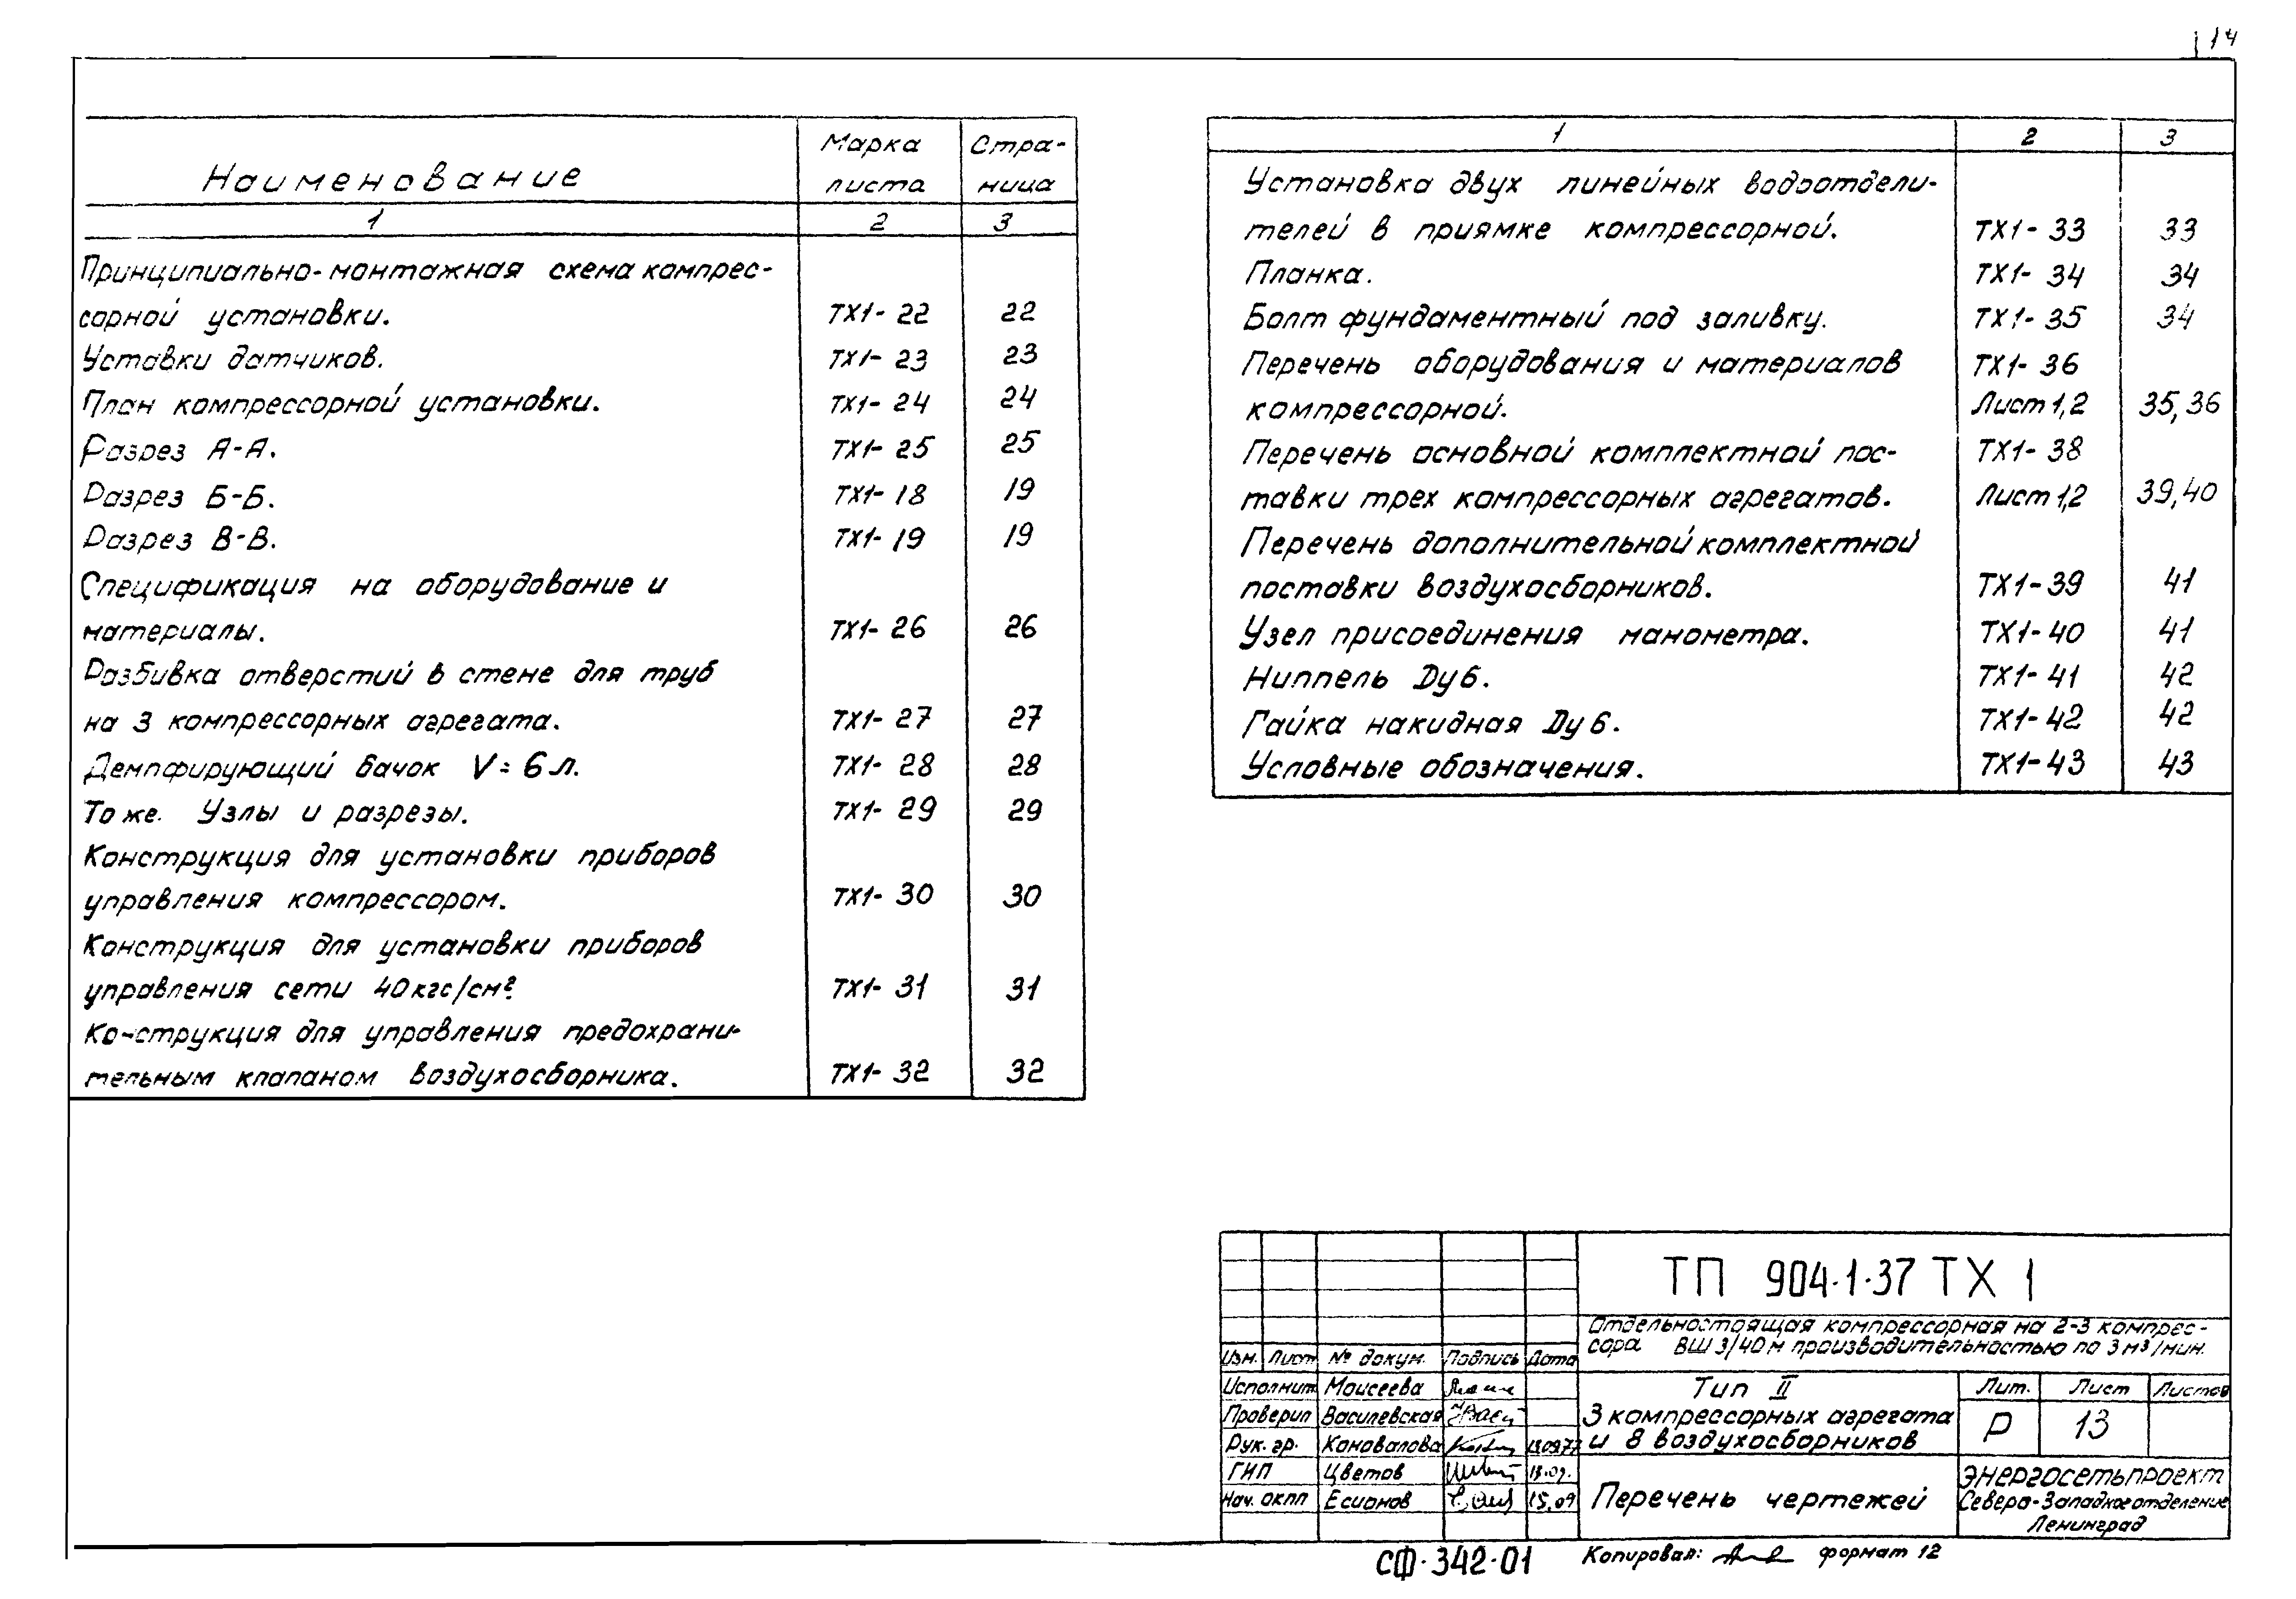 14
Наименование
Марка листа
Стра-
ница
1 2 3
Принципиально-монтажная схема компрес-
сорной установки. ТХ1-22 22
Уставки датчиков. ТХ1-23 23
План компрессорной установки. ТХ1-24 24
Разрез А-А. ТХ1-25 25
Разрез Б-Б. ТХ1-18 19
Разрез В-В. ТХ1-19 19
Спецификация на оборудование и
материалы. ТХ1-26 26
Разбивка отверстий в стене для труб
на 3 компрессорных агрегата. ТХ1-27 27
Демпфирующий бачок V=6л. ТХ1-28 28
То же. Узлы и разрезы. ТХ1-29 29
Конструкция для установки приборов
управления компрессором. ТХ1-30 30
Конструкция для установки приборов
управления сети 40кгс/см². ТХ1-31 31
Конструкция для управления предохрани-
тельным клапаном воздухосборника. ТХ1-32 32
1 2 3
Установка двух линейных водоотдели-
телей в приямке компрессорной. ТХ1-33 33
Планка. ТХ1-34 34
Болт фундаментный под заливку. ТХ1-35 34
Перечень оборудования и материалов ТХ1-36
компрессорной. Лист 1,2 35,36
Перечень основной комплектной пос- ТХ1-38
тавки трех компрессорных агрегатов. Лист 1,2 39,40
Перечень дополнительной комплектной
поставки воздухосборников. ТХ1-39 41
Узел присоединения манометра. ТХ1-40 41
Ниппель Ду6. ТХ1-41 42
Гайка накидная Ду6. ТХ1-42 42
Условные обозначения. ТХ1-43 43
ТП 904-1-37 ТХ 1
Отдельностоящая компрессорная на 2-3 компрес-
сора ВШ 3/40м производительностью по 3 м³/мин.
Изм. Лист № докум. Подпись Дата
Исполнит Моисеева
Проверил Василевская
Рук. гр. Коновалова 13.09.77
ГИП Цветов 13.09.
Нач. ОКПП Есионов 15.09
Тип II
3 компрессорных агрегата
и 8 воздухосборников
Лит. Лист Листов
Р 13
Перечень чертежей
Энергосетьпроект
Северо-Западное отделение
Ленинград
СФ-342-01
Копировал: формат 12